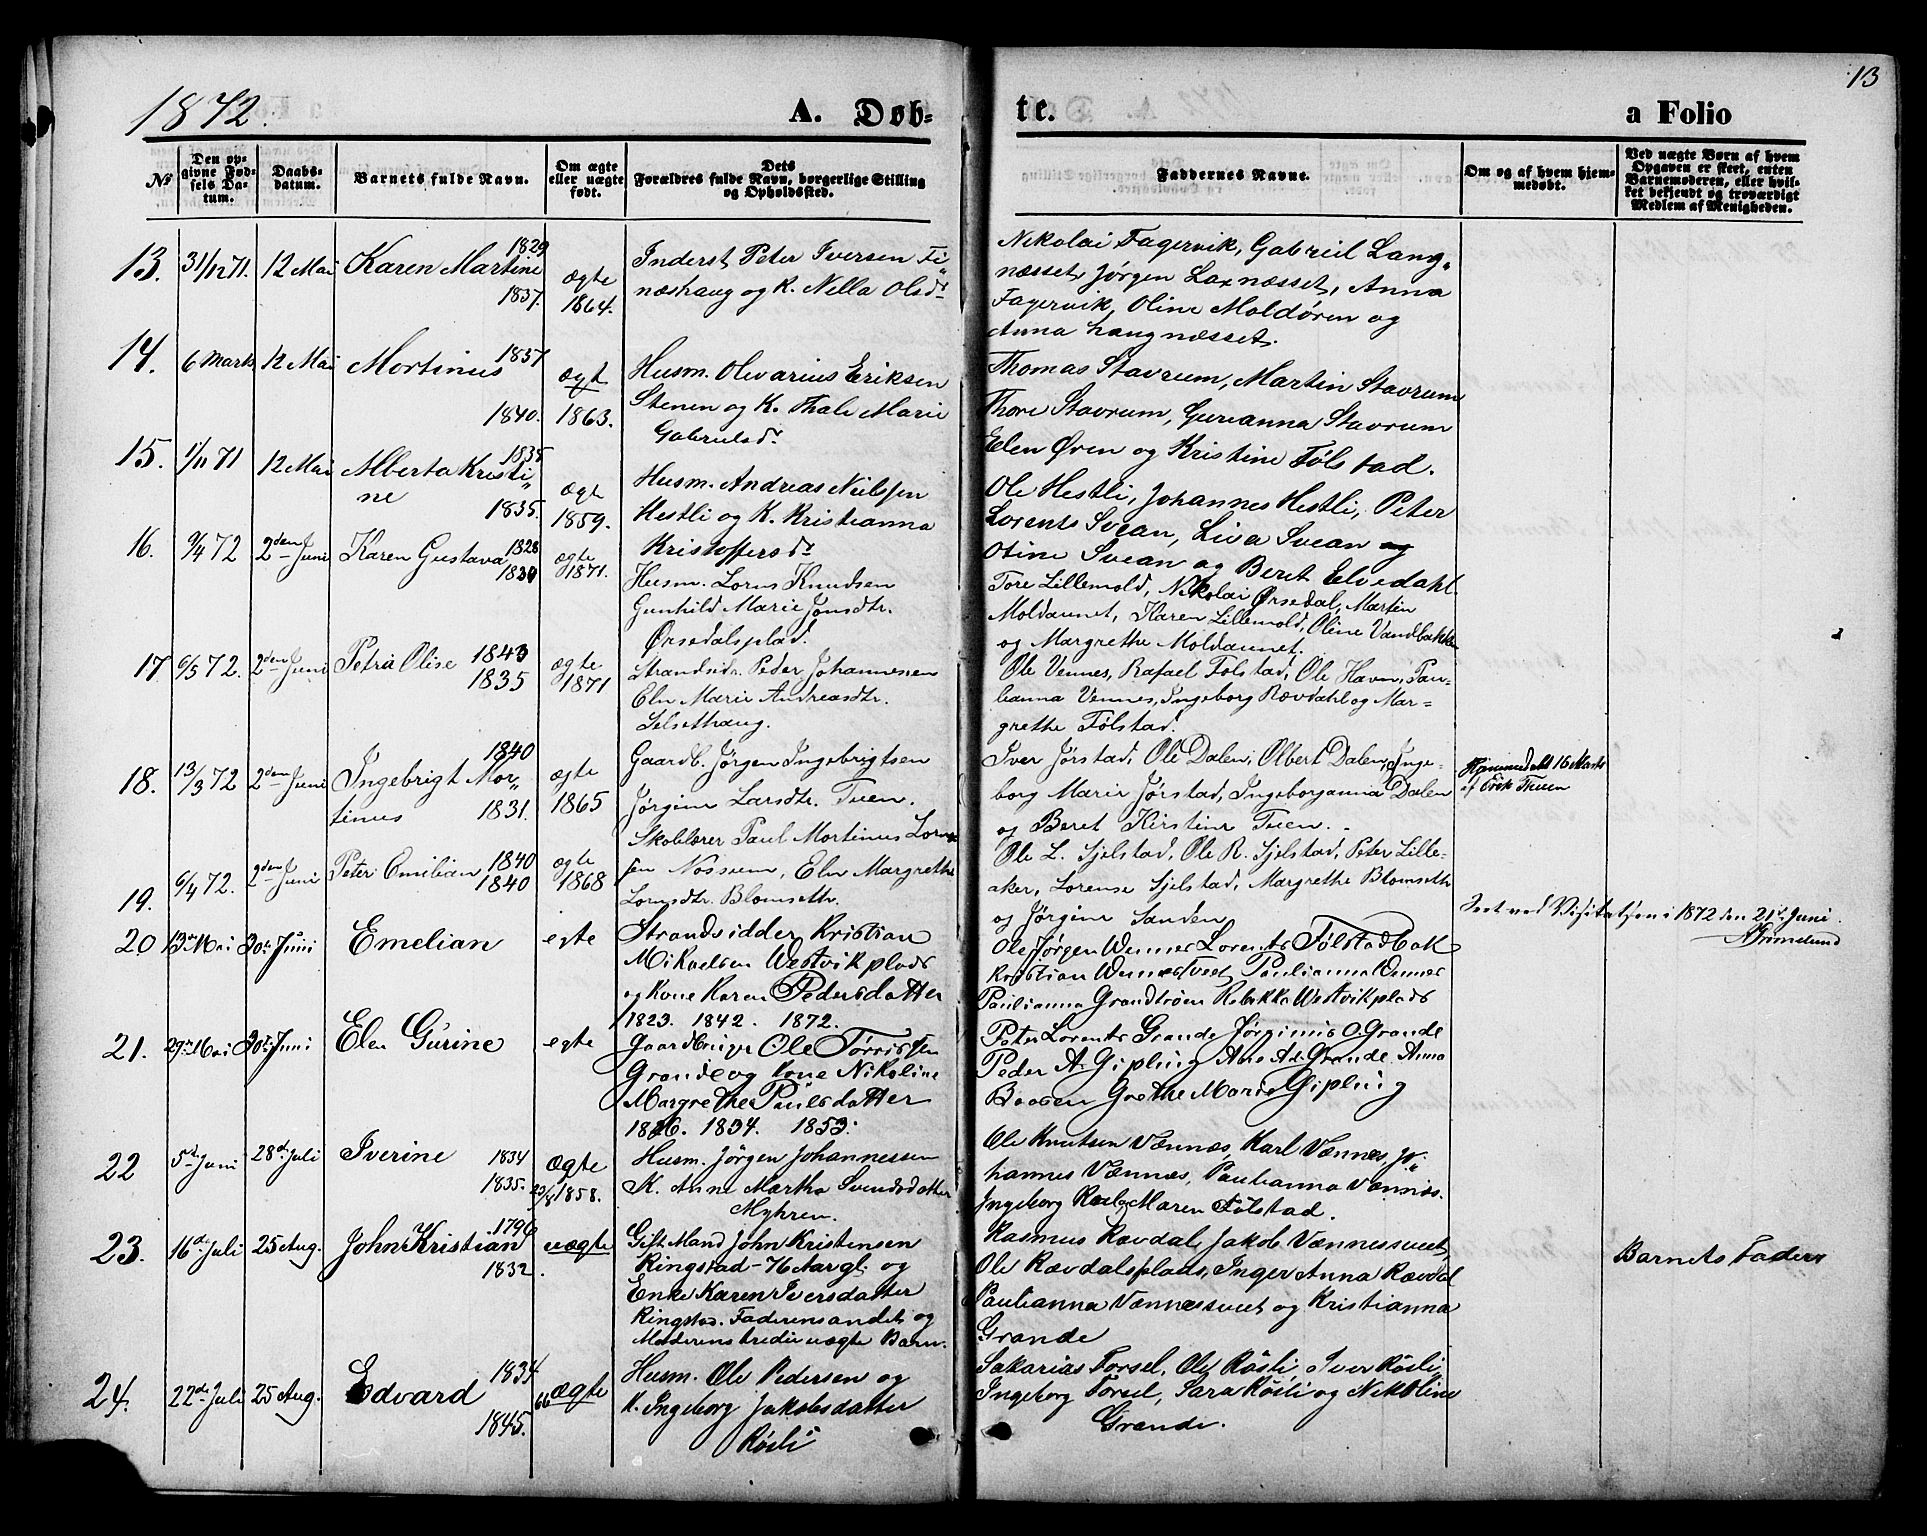 13
1872.
A. Døb-
te.
a Folio
№
Den op-
givne Fød-
sels Da-
tum.
Daabs-
datum.
Barnets fulde Navn.
Om ægte
eller uægte
født.
Dets
Forældres fulde Navn, borgerlige Stilling
og Opholdssted.
Faddernes Navne.
Om og af hvem hjem-
medøbt.
Ved uægte Børn af hvem
Opgaven er skeet, enten
Barnemoderen, eller hvil-
ket bekjendt og troværdigt
Medlem af Menigheden.
13. 31/12 71. 12 Mai Karen Martine 1829 1837. ægte 1864.
Inderst Peter Iversen Fi-
næshaug og K. Nella Olsdr
Nikolai Fagervik, Gabriel Lang-
næsset, Jørgen Laxnæsset, Anna
Fagervik, Oline Moldøren og
Anna Langnæsset.
14. 6 Marts 12 Mai Mortinus 1837 1840. ægt 1863.
Husm. Olevarius Eriksen
Stenen og K. Thale Marie
Gabrielsdr
Thomas Stavrum, Martin Stavrum
Thore Stavrum, Gurianna Stavrum
Elen Øren og Kristine Følstad.
15. 1/11 71 12 Mai Alberta Kristi-
ne 1835 1835. ægte 1859.
Husm. Andreas Nielssen
Hestli og K. Kristianna
Kristoffersdr
Ole Hestli, Johannes Hestli, Peter
Lorents Svean, Liva Svean og
Otine Svean og Beret Elvedahl.
16. 9/4 72 2den Juni Karen Gustava 1828 1830 ægte 1871.
Husm. Lorns Knudsen
Gunhild Marie Jonsdtr.
Ørsedalsplad.
Tore Lillemold, Nikolai Ørsedal, Martin
Moldaunet, Karen Lillemold, Oline Vandbakken
og Margrethe Moldaunet.
17 6/5 72. 2den Juni Petra Olise 1843 1835 ægte 1871
Strandsidr. Peder Johannesen
Eln Marie Andreasdtr.
Selsethaug.
Ole Vennes, Rafael Følstad, Ole Havn, Pau-
lianna Vennes, Ingeborg Rævdahl og Mar-
grethe Følstad.
18. 13/3 72 2den Juni Ingebrigt Mor-
tinus 1840 1831. ægte 1865
Gaardb. Jørgen Ingebrigtsen
Jørgine Larsdtr. Tuen.
Iver Jørstad, Ole Dalen, Olbert Dalen, Inge-
borg Marie Jørstad, Ingeborganna Dalen
og Beret Kirstine Tuen.
Hjemmedøbt 16 Marts
af Erik Thuen
19. 6/4 72. 2den Juni Peter Emilian 1840 1840 ægte 1868
Skolelærer Paul Mortinus Lorns-
sen Nossum, Eln Margrethe
Lornsdtr. Blomseth.
Ole L. Sjelstad, Ole R. Sjelstad, Peter Lille-
aker, Lorense Sjelstad, Margrethe Blomseth
og Jørgine Sanden
Seet ved Visitatsen i 1872 den 21de Juni.
AGrimelund
20 13de Mai 30te Juni Emelian egte
Strandsidder Kristian
Mikaelsen Westvikplads
og Kone Karen Pedersdatter
1823. 1842. 1872.
Ole Jørgen Wennes Lorents Følstadbak
Kristian Wennestveet Paulianna Wennes
Paulianna Grandtrøen Rebekka Westvikplads
21. 29de Mai 30te Juni Elen Gurine egte
Gaardbruger Ole Torrissen
Grande og kone Nikoline
Margrethe Paulsdatter
1826. 1834. 1853.
Peter Lorents Grande Jørginus O. Grande
Peder A. Gipling Ane A. Grande. Anna
Boosen Grethe Marie Gipling
22 5te Juni 28de Juli Iverine 1834 1835. Ægte 23/8 1858.
Husm. Jørgen Johannessen
K. Anne Martha Svendsdatter
Myhren.
Ole Knutsen Vænnæs, Karl Vænnæs, Jo-
hannes Vænnæs, Paulianna Vænnæs.
Ingeborg Rævdal og Maren Følstad.
23. 16de Juli 25 Aug. John Kristian 1796 1832. uægte
Gift Mand John Kristensen
Ringstad - 76 Aar gl. og
Enke Karen Iversdatter
Ringstad. Faderens andet og
Moderens tredie uægte Barn.
Rasmus Rævdal, Jakob Vænnessveet,
Ole Rævdalsplads, Inger Anna Rævdal
Paulianna Vænnessveet og Kristianna
Grande
Barnets Fader
24. 22de Juli 25 Aug. Edvard 1834 1845. 66 Ægte
Husm. Ole Pedersen og
K. Ingeborg Jakobsdatter
Røsli
Sakarias Forsel, Ole Røsli, Iver Røsli,
Ingeborg Forsel, Sara Røsli og Nikoline
Grande.